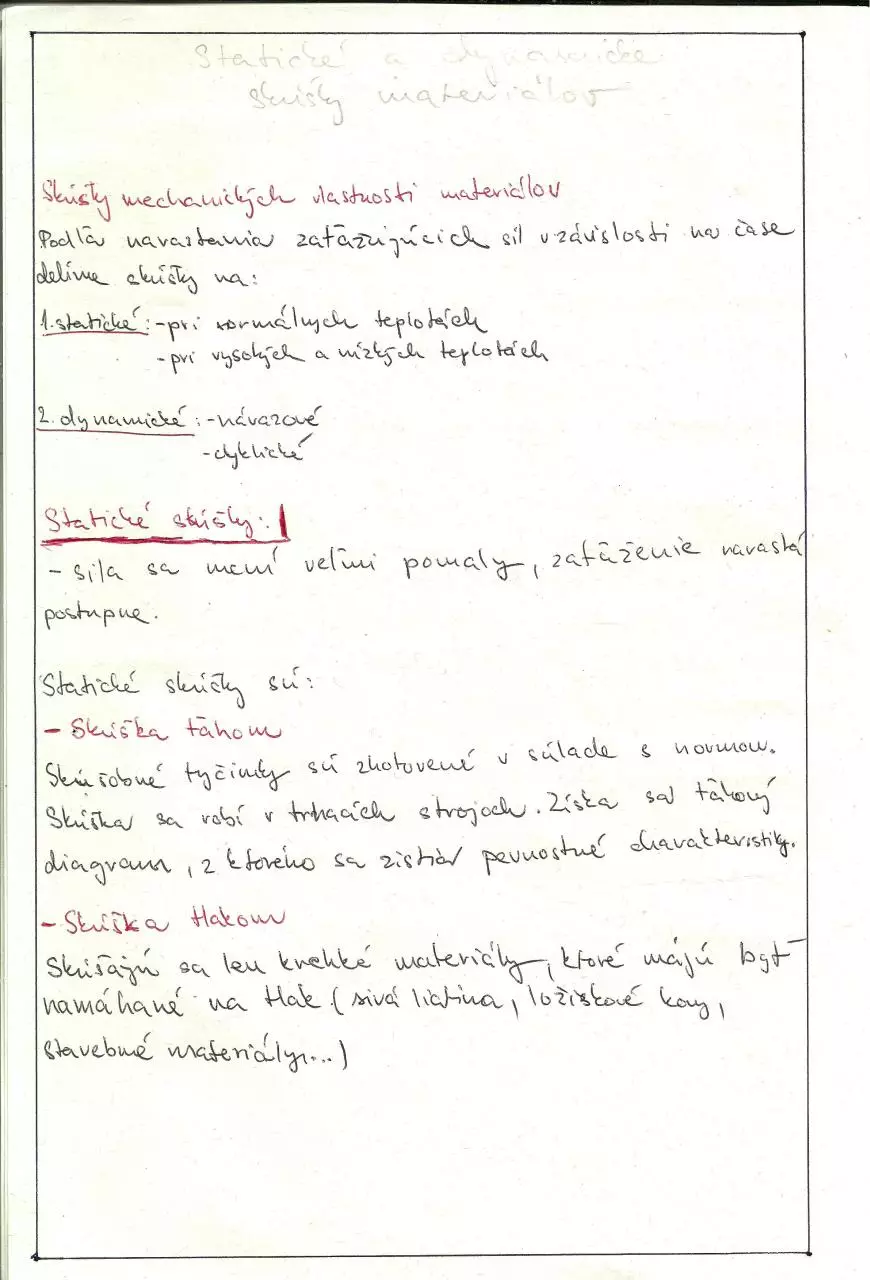 Statické a dynamické
skúšky materiálov
Skúšky mechanických vlastností materiálov
Podľa narastania zaťažujúcich síl v závislosti na čase
delíme skúšky na:
1. statické: -pri normálnych teplotách
-pri vysokých a nízkych teplotách
2. dynamické: -nárazové
-cyklické
Statické skúšky:
- sila sa mení veľmi pomaly, zaťaženie narastá
postupne.
Statické skúšky sú:
- Skúška ťahom
Skúšobné tyčinky sú zhotovené v súlade s normou.
Skúška sa robí v trhacích strojoch. Získa sa ťahový
diagram, z ktorého sa zistia pevnostné charakteristiky.
- Skúška tlakom
Skúšajú sa len krehké materiály, ktoré májú byť
namáhané na tlak (sivá liatina, ložiskové kovy,
stavebné materiály...)